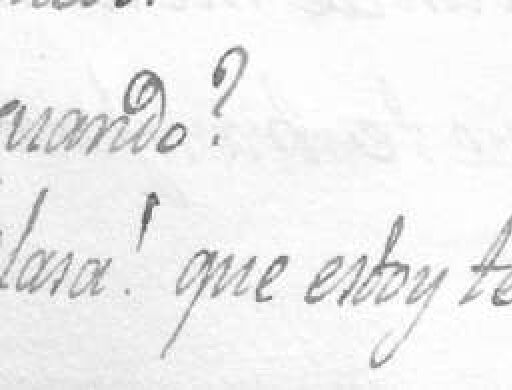 quando?
Clara! que estoy te